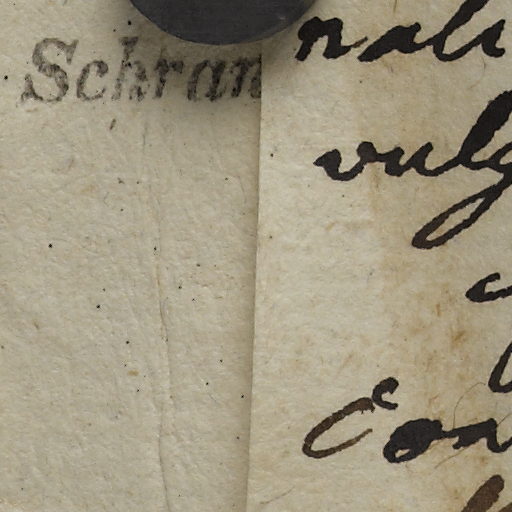 Schran
nali
vulg
Con